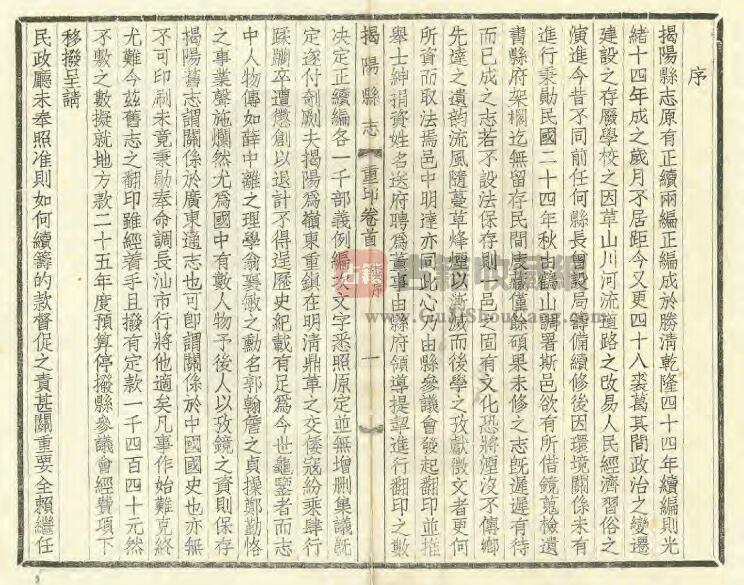 序
揭陽縣志原有正續兩編正編成於勝清乾隆四十四年續編則光
緒十四年成之歲月不居距今又更四十八裘葛其間政治之變遷
建設之存廢學校之因革山川河流道路之改易人民經濟習俗之
演進今昔不同前任何縣長曾設局籌備續修後因環境關係未有
進行秉勛民國二十四年秋由鶴山調署斯邑欲有所借鏡蒐檢遺
書縣府架櫊迄無留存民間衷藏僅餘碩果未修之志旣遲遲有待
而已成之志若不設法保存則一邑之固有文化恐將湮沒不傳鄉
先達之遺韵流風隨蔓草烽煙以漸滅而後學之攷獻徵文者更何
所資而取法焉邑中明達亦同此心乃由縣參議會發起翻印並推
舉士紳捐資姓名送府聘爲董事由縣府領導提挈進行翻印之數
揭陽縣志 重印卷首 序 一
决定正續編各一千部義例編次文字悉照原定並無增刪集議旣
定遂付剞劂夫揭陽爲嶺東重鎮在明清鼎革之交倭寇紛乘肆行
蹂躪卒遭懲創以退計不得逞歷史紀載有足爲今世龜鑒者而志
中人物傳如薛中離之理學翁襄敏之勳名郭翰詹之貞操鄭勤恪
之事業聲施爛然尤爲國中有數人物予後人以攷鏡之資則保存
揭陽舊志謂關係於廣東通志也可卽謂關係於中國國史也亦無
不可印刷未竟秉勛奉命調長汕市行將他適矣凡事作始難克終
尤難今茲舊志之翻印雖經着手且撥有定款一千四百四十元然
不敷之數擬就地方款二十五年度預算停撥縣參議會經費項下
移撥呈請
民政廳未奉照准則如何續籌的款督促之責甚關重要全賴繼任
古籍收藏網
www.GuJiShouCang.com